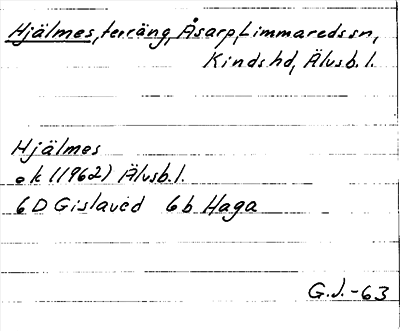 Hjälmes, terräng, Åsarp, Limmareds sn,
Kinds hd, Älvsb. l.
Hjälmes
ek (1962) Älvsb. l.
6D Gislaved 6b Haga
G.J.-63